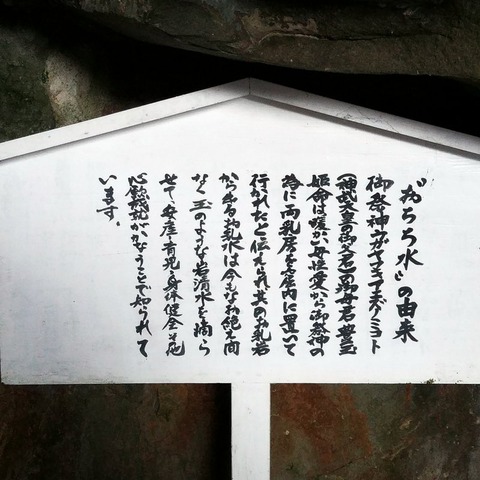 "おちち水"の由来
御祭神ウガヤフキアエズノミコト
(神武天皇の御父君)の御母君 豊玉
姫命は暖かい母性愛から御祭神の
為に両乳房を窟内に置いて
行かれたと伝えられ其のお乳岩
から出るお乳水は今もなお絶え間
なく玉のような岩清水を滴ら
せて安産・育児・身体健全其他
心願成就がかなうことで知られて
います。